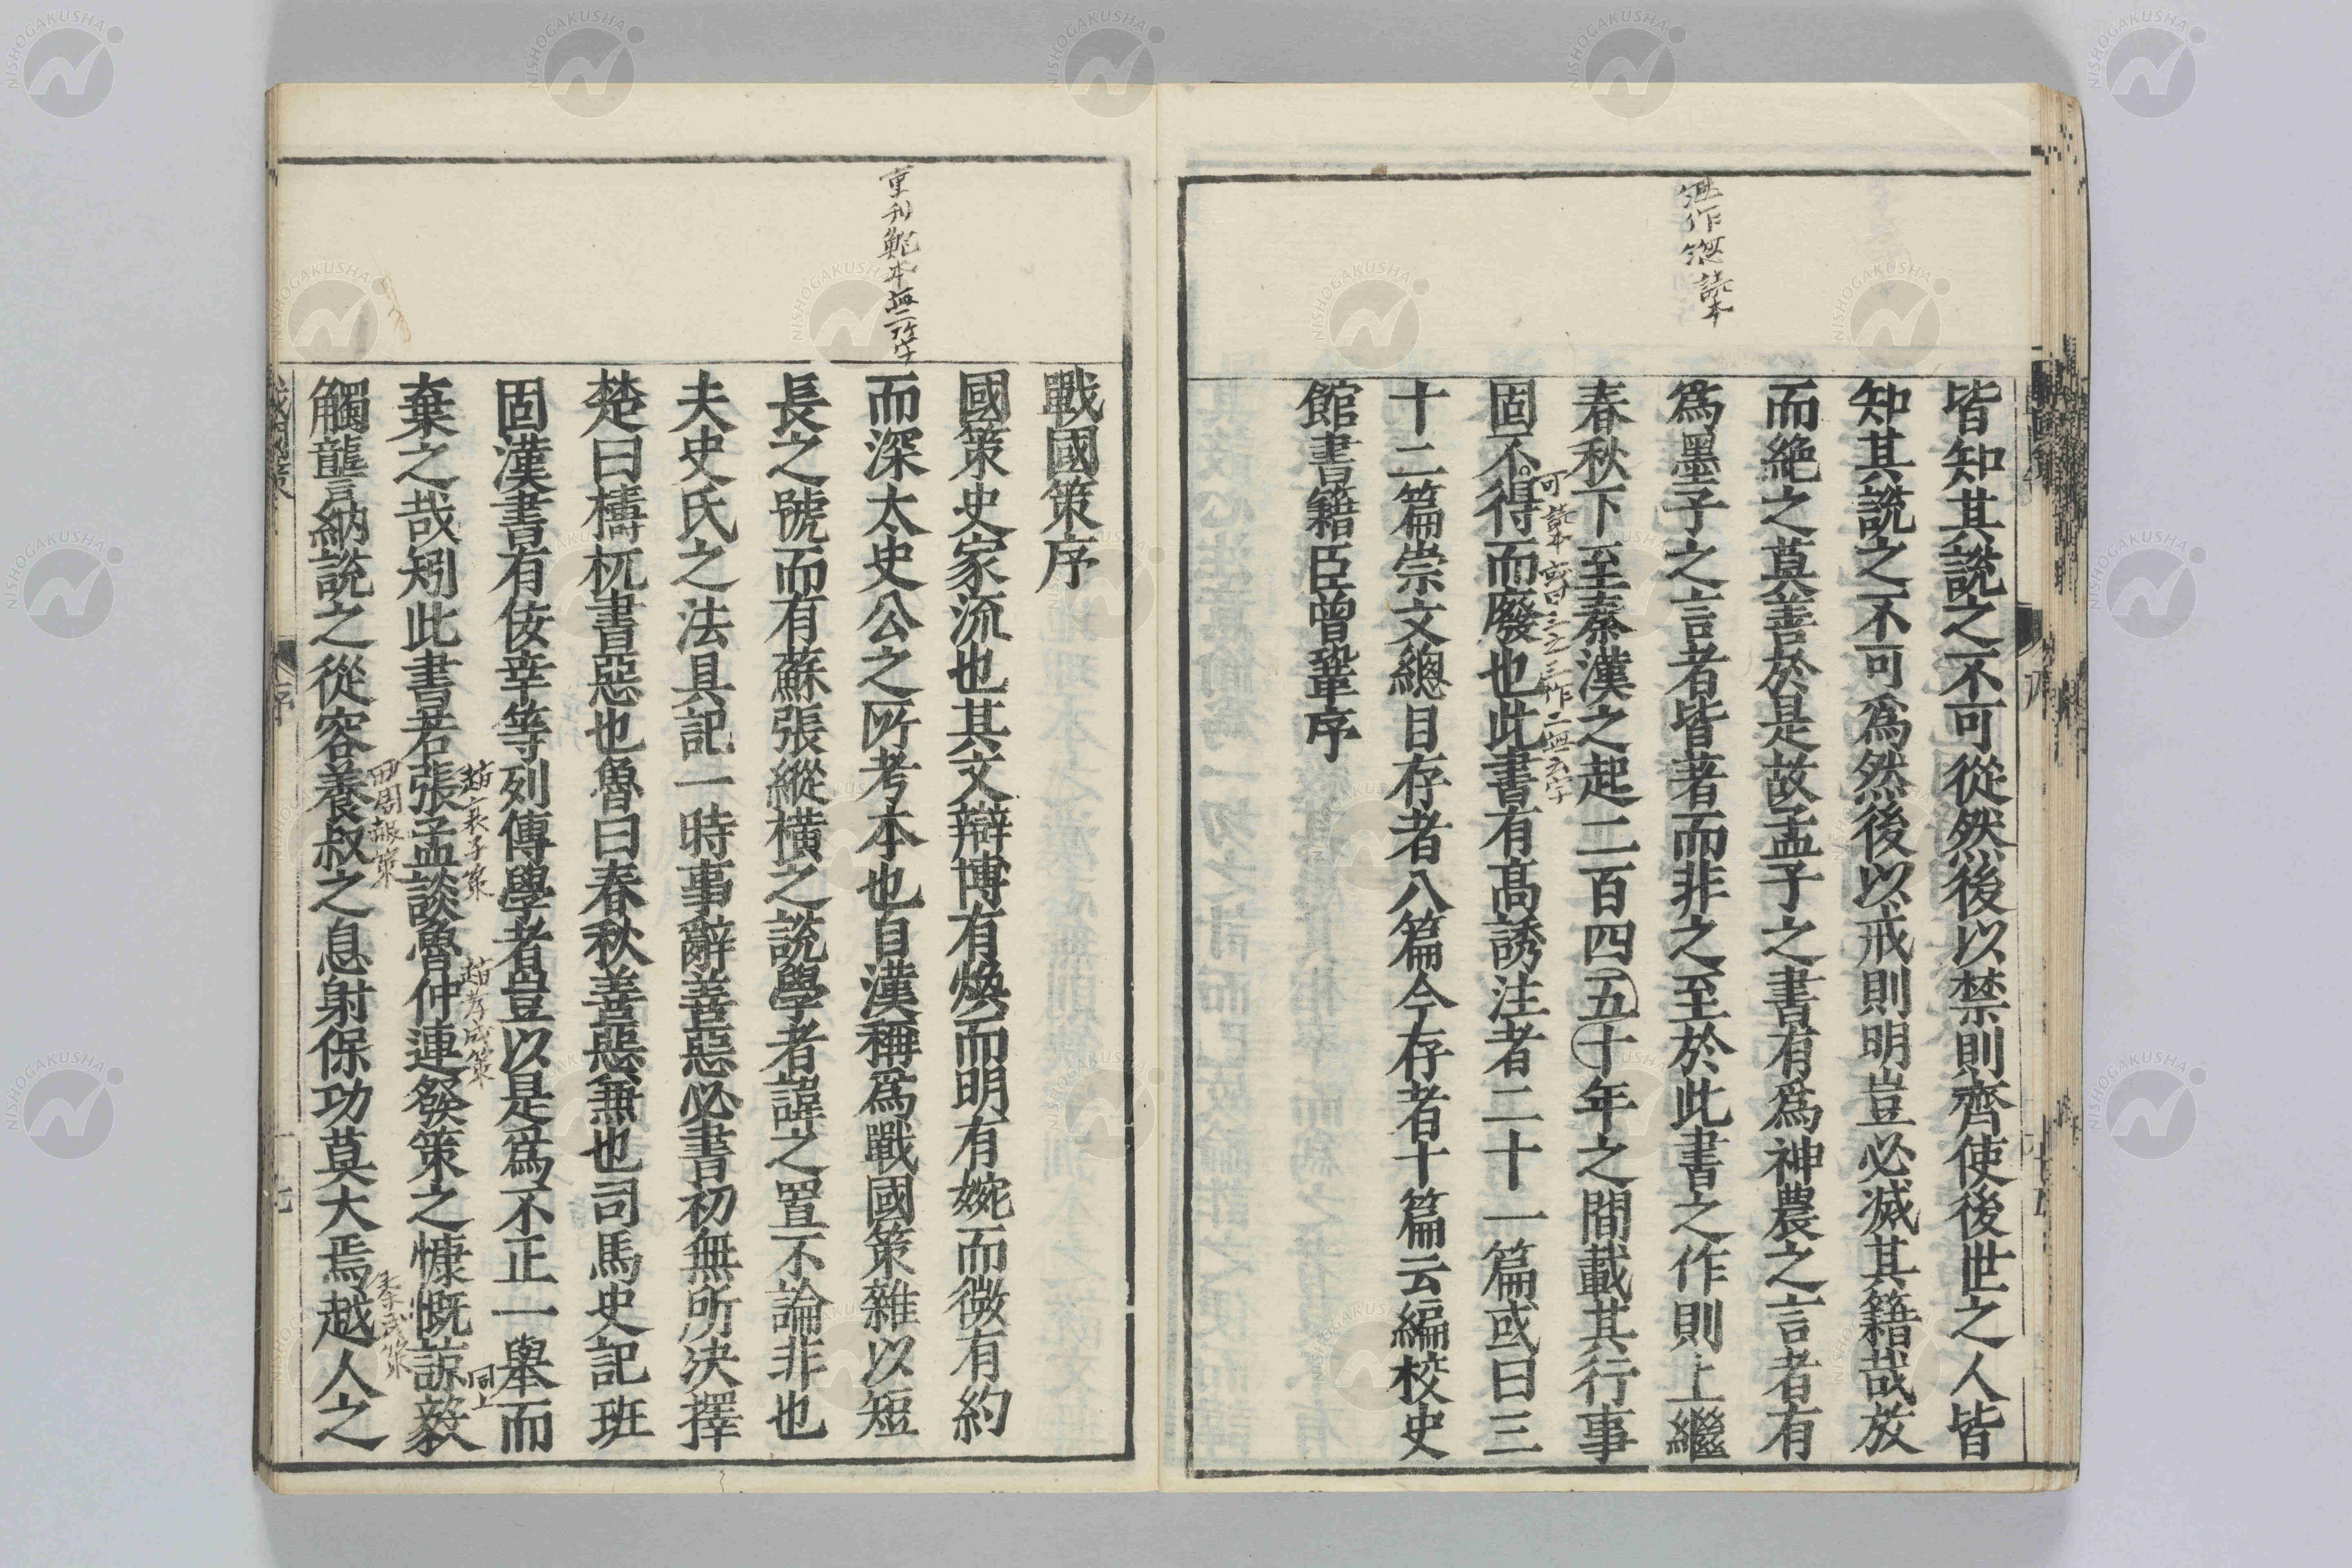 皆知其說之不可從然後以禁則齊使後世之人皆
知其說之不可爲然後以戒則明豈必滅其籍哉放
而絶之莫善於是故孟子之書有爲神農之言者有
爲墨子之言者皆著而非之至於此書之作則上繼
春秋下至秦漢之起二百四五十年之間載其行事
固不得而廢也此書有高誘注者二十一篇或曰三
十二篇崇文總目存者八篇今存者十篇云編校史
館書籍臣曾鞏序
戰國策序
國策史家流也其文辯博有煥而明有婉而微有約
而深太史公之所考本也自漢稱爲戰國策雜以短
重刊鮑本無二改字
長之號而有蘇張縱橫之說學者諱之置不論非也
夫史氏之法具記一時事辭善惡必書初無所决擇
楚曰檮杌書惡也魯曰春秋善惡兼也司馬史記班
固漢書有佞幸等列傳學者豈以是爲不正一舉而
棄之哉矧此書若張孟談魯仲連發策之慷慨諒毅
趙襄子策
趙孝成策
同上
觸讋納說之從容養叔之息射保功莫大焉越人之
NISHOGAKUSHA